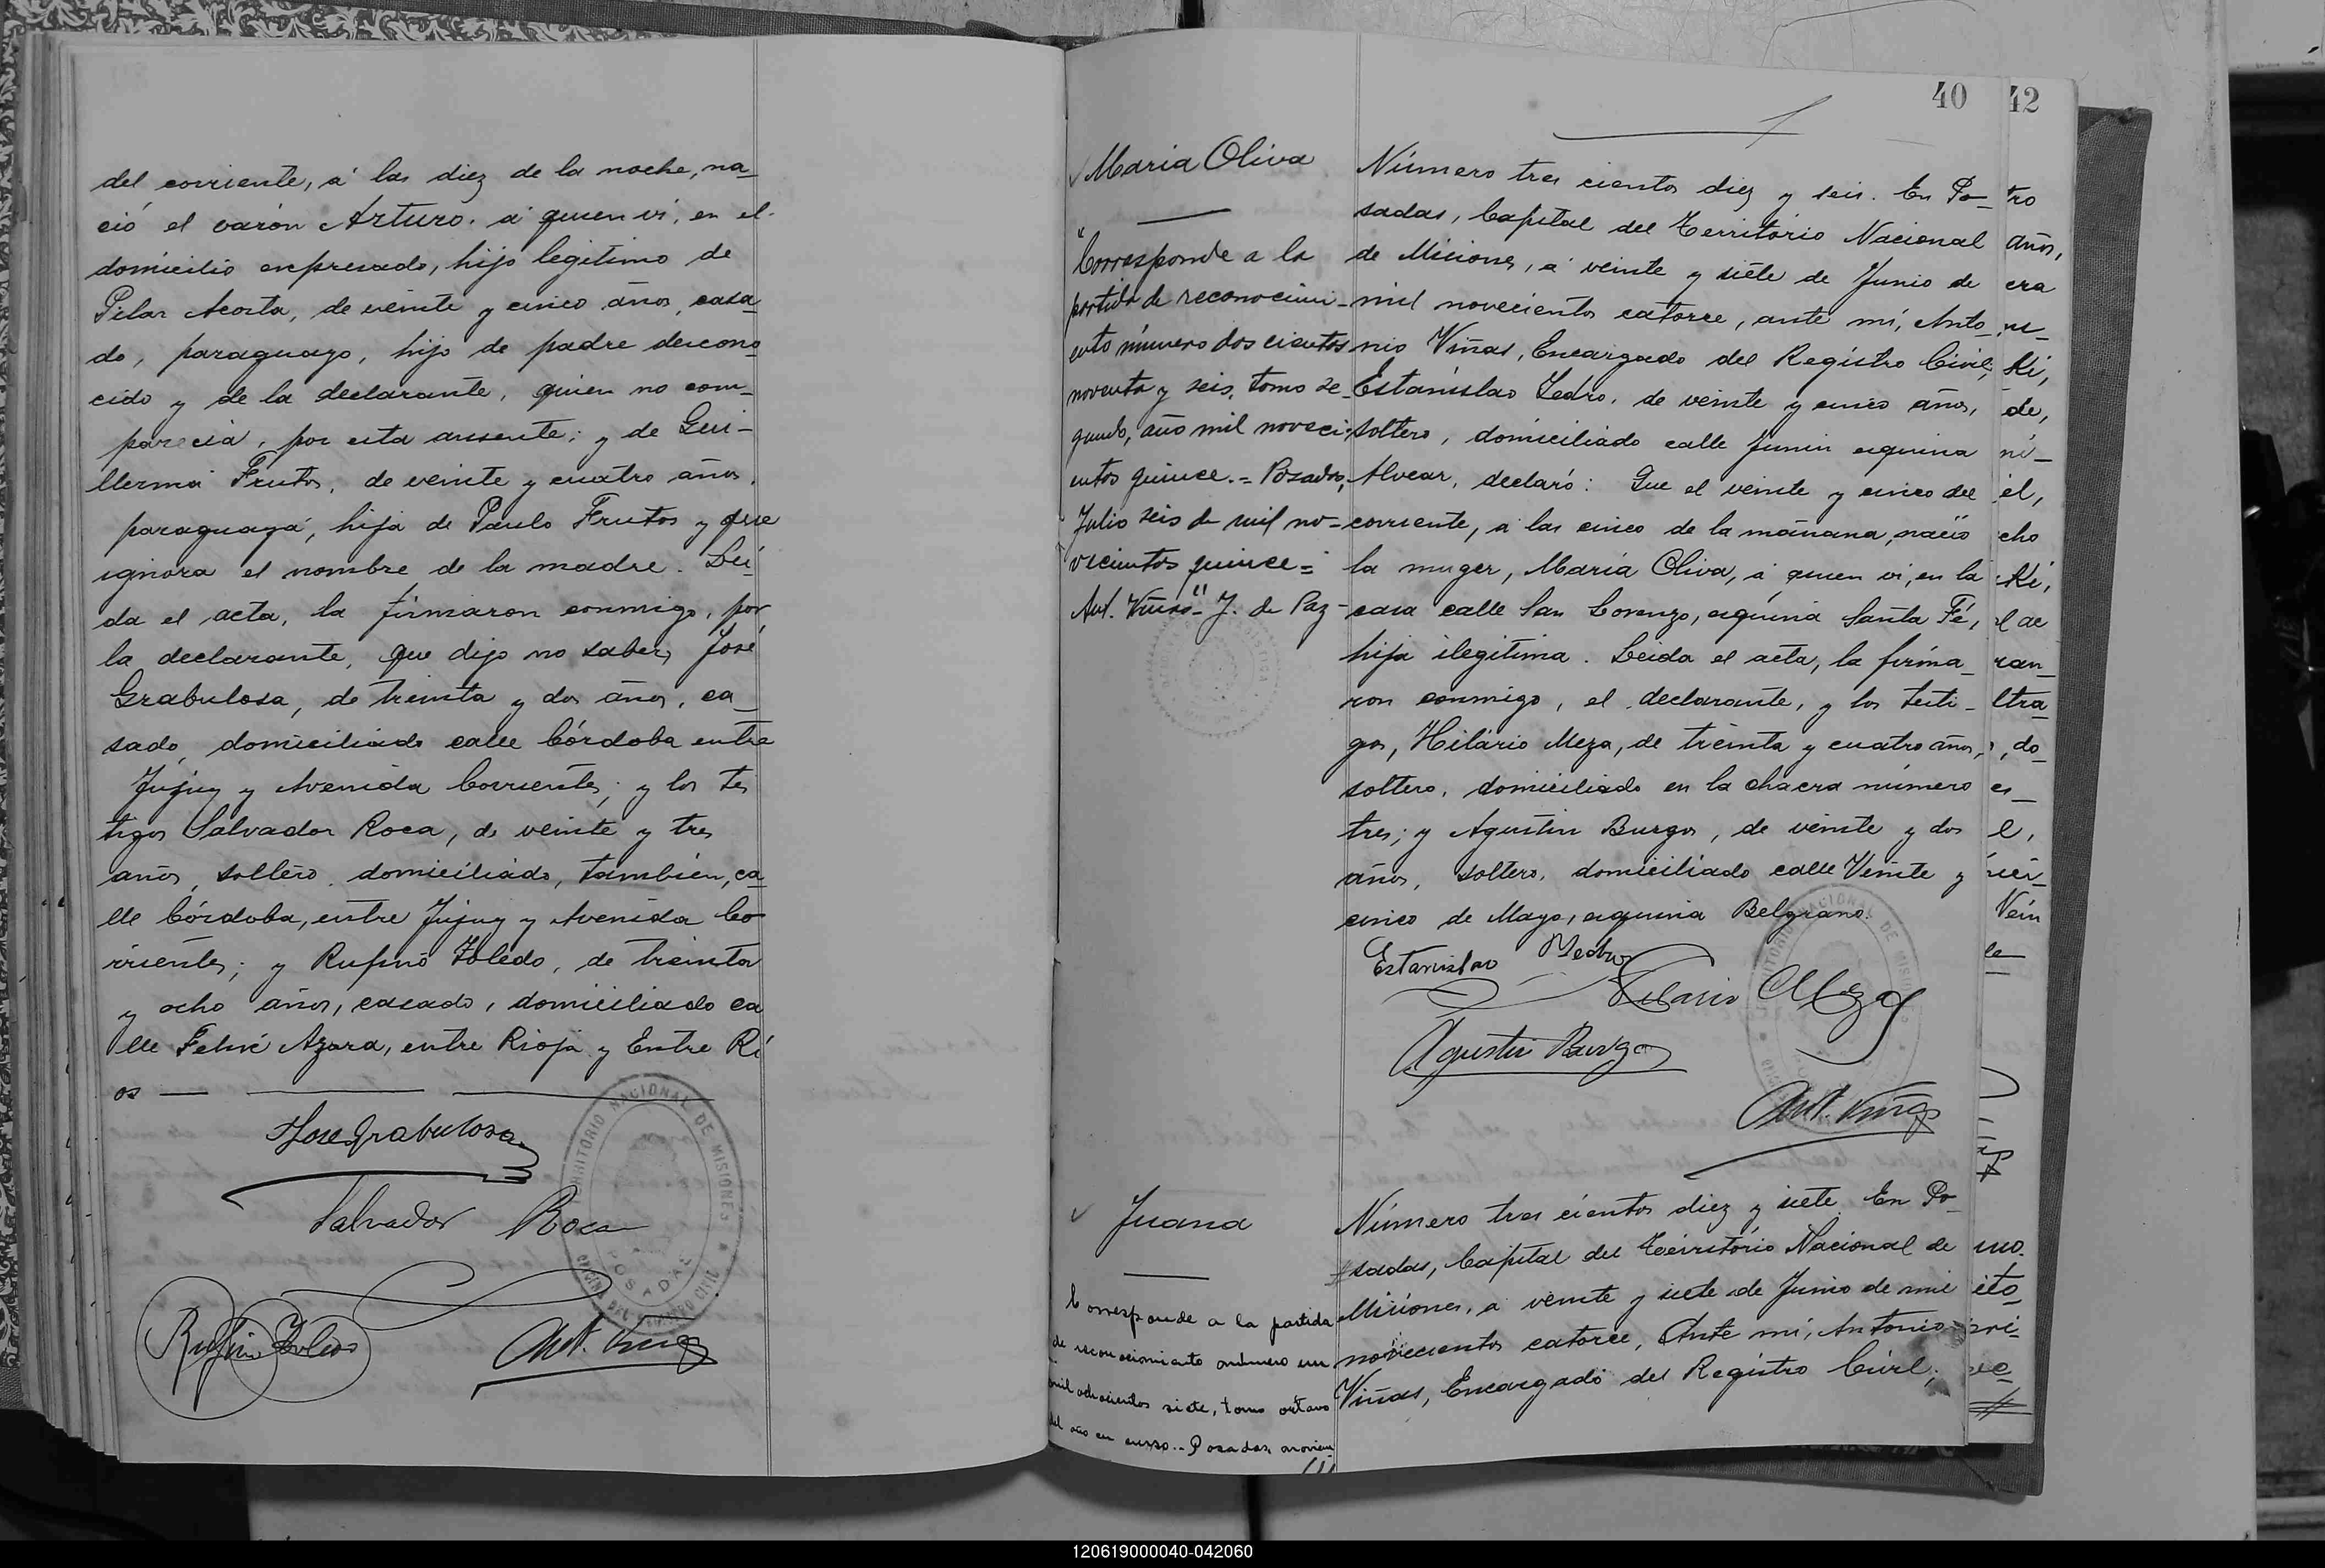 del corriente, á las diez de la noche, na_
ció el varón Arturo. á quien ví, en el
domicilio expresado, hijo legitimo de
Pilar Acosta, de veinte y cinco años, casa_
do, paraguayo, hijo de padre descono_
cido y de la declarante, quien no com_
parecia, por esta ausente; y de Gui_
llerma Frutos, de veinte y cuatro años,
paraguaya, hija de Paulo Frutos y que
ignora el nombre de la madre. Lei_
da el acta, la firmaron conmigo, por
la declarante, que dijo no saber, José
Grabulosa, de treinta y dos años, ca_
sado, domiciliado calle Córdoba entre
Jujuy y Avenida Corrientes; y los tes
tigos Salvador Roca, de veinte y tres
años, soltero, domiciliado, también, ca_
lle Córdoba, entre Jujuy y Avenida Co
rrientes; y Rufino Toledo, de treinta
y ocho años, casado, domiciliado ca
lle Felix Azara, entre Rioja y Entre Rí
os
Jose Grabulosa
Salvador Roca
Rufino Toledo
Ant. Viñas
TERRITORIO NACIONAL DE MISIONES
OFICINA DEL REGISTRO CIVIL
POSADAS
40
María Oliva
"Corresponde a la
partida de reconocimi_
ento número dos cientos
noventa y seis, tomo se_
gundo, año mil noveci_
entos quince.= Posadas,
Julio seis de mil no_
vecientos quince=
Ant. Viñas" J. de Paz
Número tres cientos diez y seis. En Po_
sadas, Capital del Territorio Nacional
de Misiones, á veinte y siete de Junio de
mil novecientos catorce, ante mí, Anto_
nio Viñas, Encargado del Registro Civil;
Estanislao Ledro, de veinte y cinco años,
soltero, domiciliado calle Junin esquina
Alvear, declaró: Que el veinte y cinco del
corriente, a las cinco de la mañana, nació
la muger, María Oliva, á quien ví, en la
casa calle San Lorenzo, esquina Santa Fé,
hija ilegitima. Leida el acta, la firma_
ron conmigo, el declarante, y los testi_
gos, Hilário Meza, de treinta y cuatro años,
soltero, domiciliado en la chacra número
tres; y Agustin Burgos, de veinte y dos
años, soltero, domiciliado calle Veinte y
cinco de Mayo, esquina Belgrano.
Estanislao
Hilario Meza
Agustin Burgos
Ant. Viñas
Juana
Corresponde a la partida
de reconocimiento número un
mil ochocientos siete, tomo octavo
del año en curso.- Posadas, noviem
Número tres cientos diez y siete. En Po_
sadas, Capital del Territorio Nacional de
Misiones, á veinte y siete de Junio de mil
novecientos catorce, Ante mí, Antonio
Viñas, Encargado del Registro Civil;
42
tro
años,
era
Ki,
de,
ni_
el,
cho
Ki,
l de
ran_
ltra_
, do_
es_
e,
Vein
le
120619000040-042060